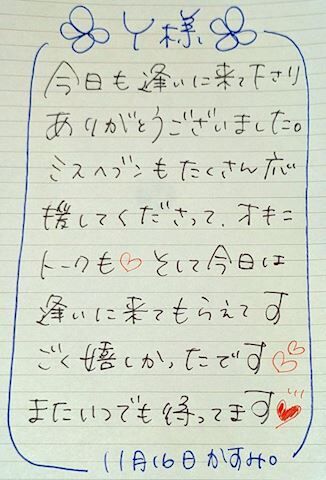 Y様
今日も逢いに来て下さり
ありがとうございました。
ミスヘブンもたくさん応
援してくださって、オキニ
トークも♡そして今日は
逢いに来てもらえてす
ごく嬉しかったです♡♡
またいつでも待ってます♥
11月16日かすみ。